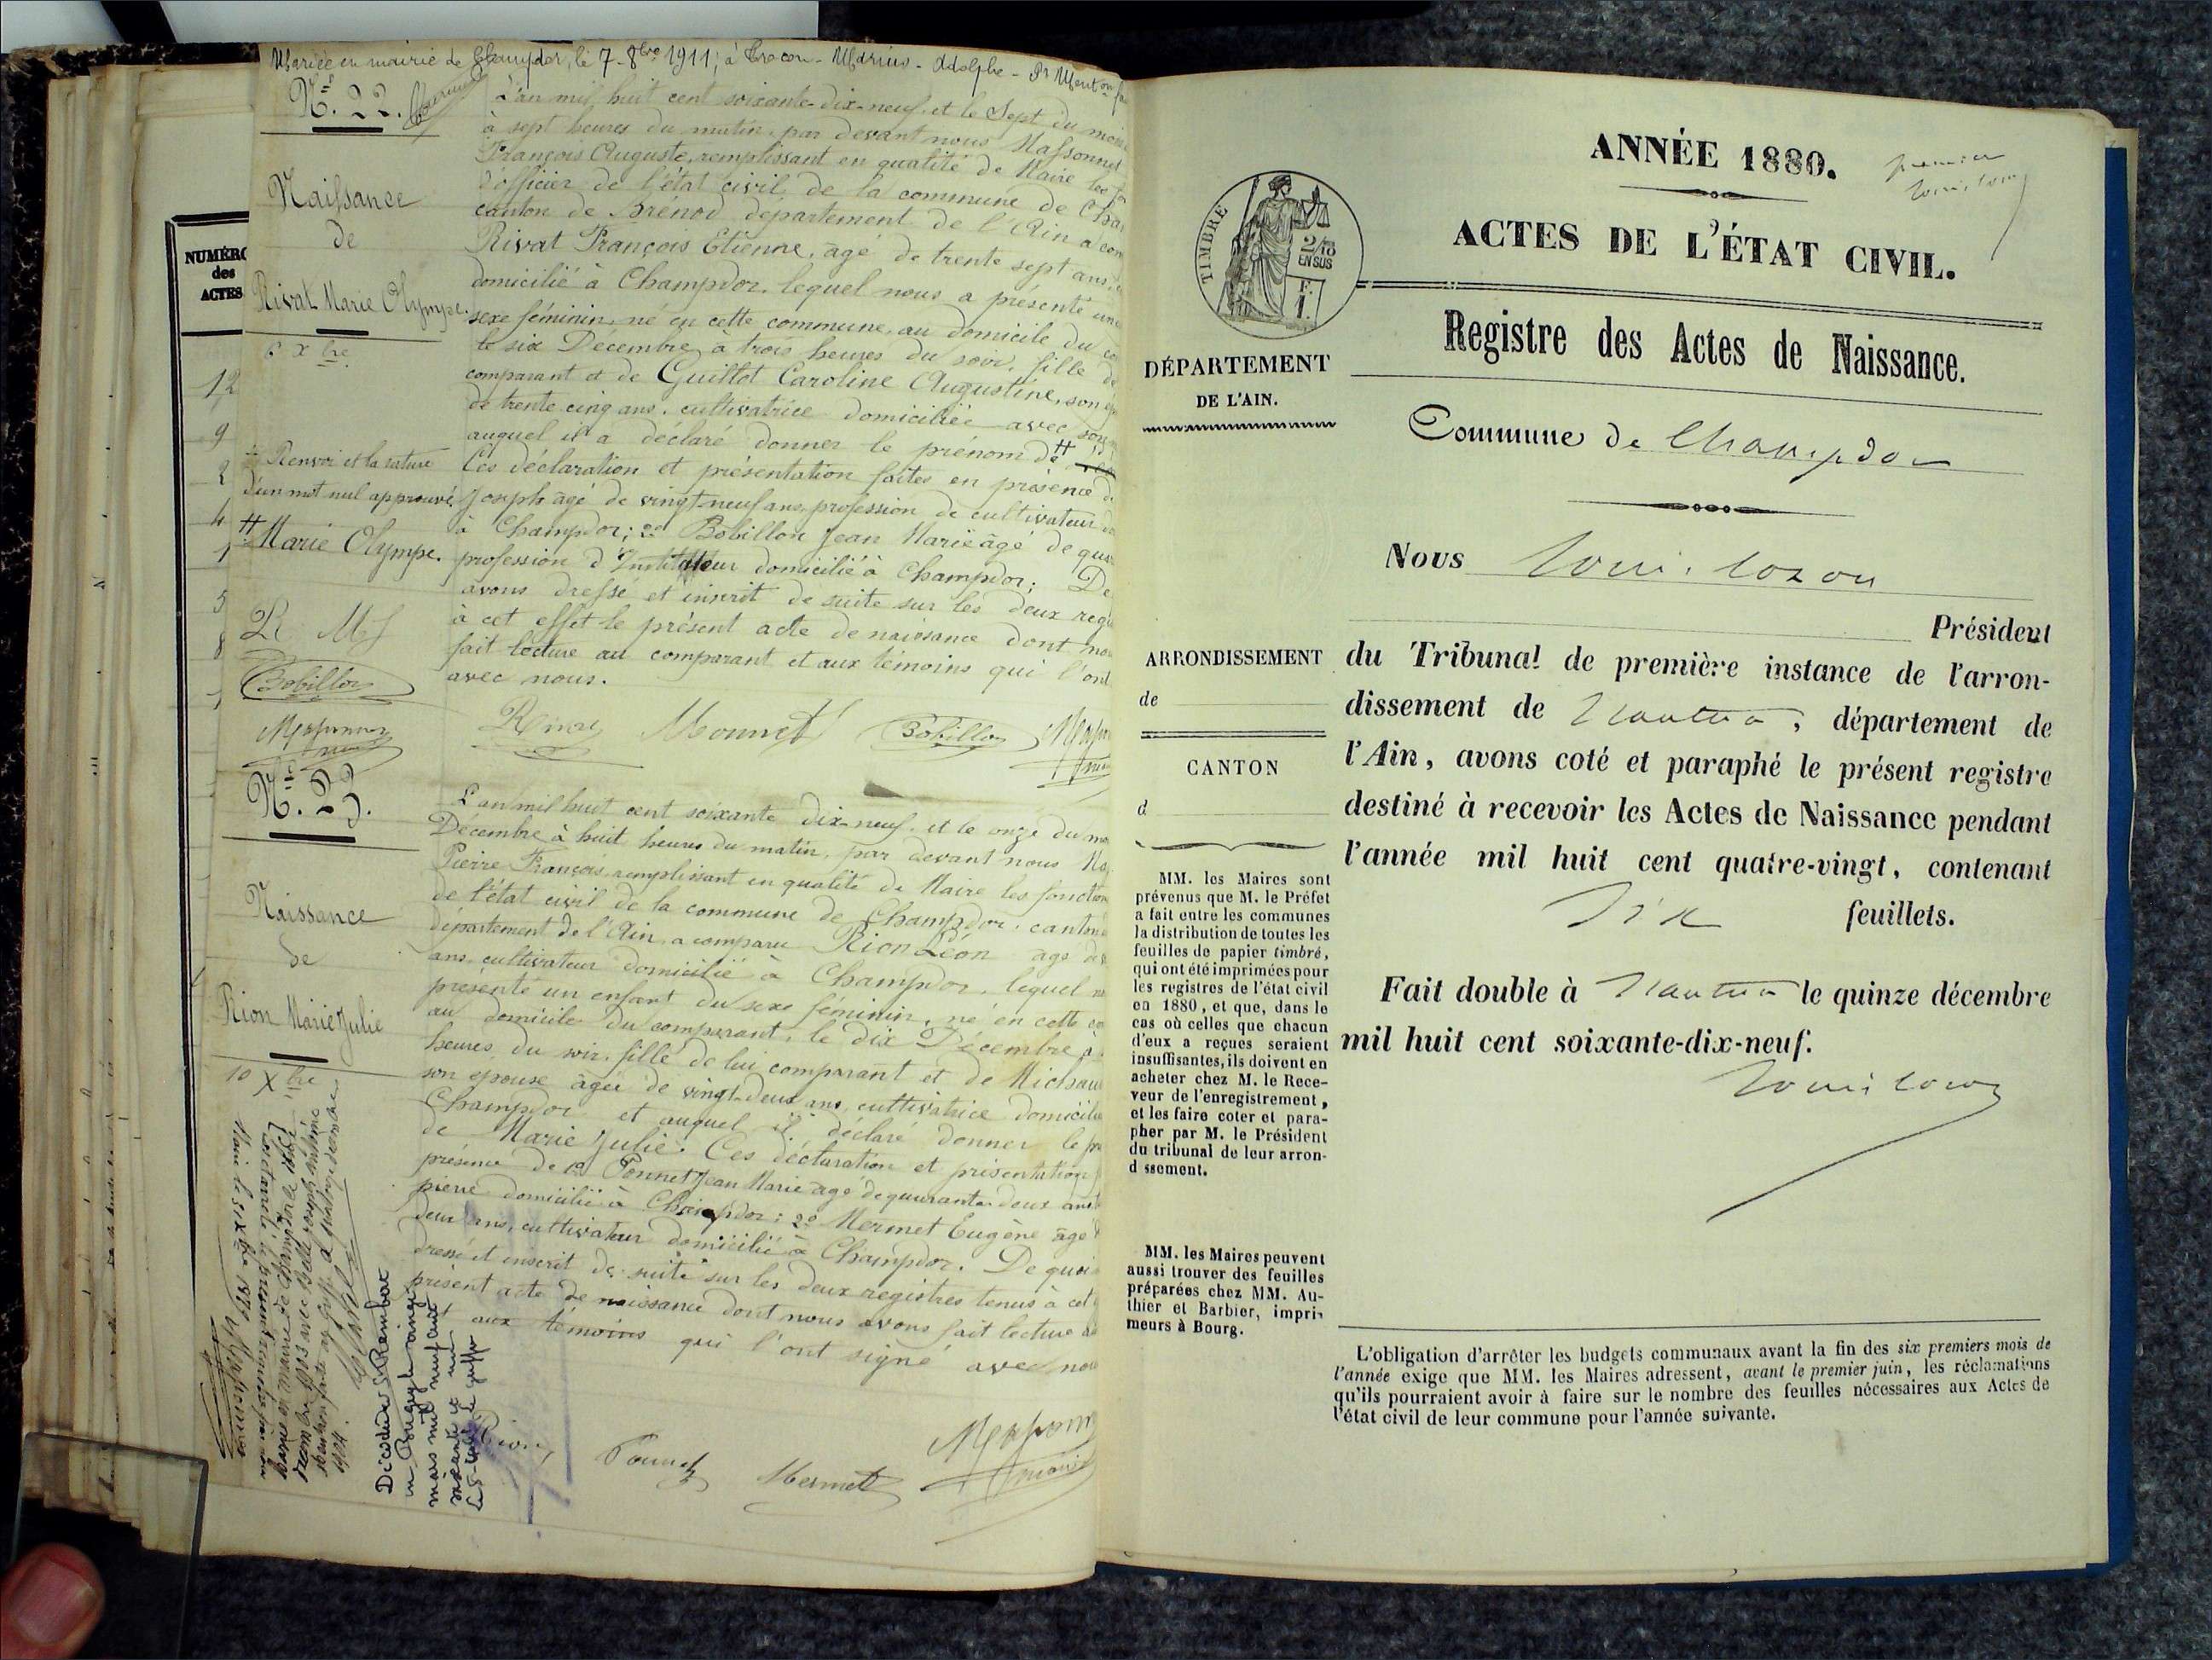 Mariée en mairie de Champdor, le 7-8bre 1911, à Crocon - Marius - Adolphe -
N° 22.
Naissance
de
Rivat Marie Olympe.
6 Xbre
Renvoi et la rature
d'un mot nul approuvé.
# Marie Olympe.
R. M
Bobillon
NUMÉRO
des
ACTES
12
9
2
4
1
5
8
L'an mil huit cent soixante-dix-neuf, et le Sept du mois
à sept heures du matin, par devant nous Massonnet
François Auguste, remplissant en qualité de Maire les
d'officier de l'état civil de la commune de Cha
canton de Brénod département de l'Ain a com
Rivat François Etienne, âgé de trente sept ans,
domicilié à Champdor, lequel nous a présenté un
sexe féminin, né en cette commune, au domicile du co
le six Décembre à trois heures du soir, fille de
comparant et de Guillot Caroline Augustine, son ép
de trente cinq ans, cultivatrice domiciliée avec son
auquel il a déclaré donner le prénom de #
Ces déclaration et présentation faites en présence d
Joseph âgé de vingt-neuf ans, profession de cultivateur do
à Champdor; 2° Bobillon Jean Marie âgé de qua
profession d'Instituteur domicilié à Champdor; De
avons dressé et inscrit de suite sur les deux regi
à cet effet le présent acte de naissance dont nou
fait lecture au comparant et aux témoins qui l'ont
avec nous.
Rivat Mounet Bobillon
N° 23.
Naissance
de
Rion Marie Julie
10 Xbre
L'an mil huit cent soixante dix-neuf, et le onze du mo
Décembre à huit heures du matin, par devant nous Ma
Pierre François, remplissant en qualité de Maire les fonction
de l'état civil de la commune de Champdor, canton d
département de l'Ain, a comparu Rion Léon âgé de
ans, cultivateur domicilié à Champdor, lequel n
présenté un enfant du sexe féminin, né en cette co
au domicile du comparant, le dix Décembre à
heures du soir, fille de lui comparant et de Michau
son épouse âgée de vingt-deux ans, cultivatrice domicilié
Champdor et auquel il déclaré donner le pr
de Marie Julie. Ces déclaration et présentation
présence de 1° Ponnet Jean Marie âgé de quarante deux ans
pierre domicilié à Champdor; 2° Mermet Eugène âgé
deux ans, cultivateur domicilié à Champdor. De quoi
dressé et inscrit de suite sur les deux registres tenus à cet
présent acte de naissance dont nous avons fait lecture a
aux témoins qui l'ont signé avec nous
Rion Ponnet Mermet
Décédée à St Rambert
en Bugey le vingt
mars mil neuf cent
soixante et un
ANNÉE 1880.
premier
ACTES DE L'ÉTAT CIVIL.
TIMBRE
2/10
EN SUS
F.
1.
Registre des Actes de Naissance.
DÉPARTEMENT
DE L'AIN.
Commune de Champdor
Nous
Président
ARRONDISSEMENT
de
CANTON
d
du Tribunal de première instance de l'arron-
dissement de Nantua, département de
l'Ain, avons coté et paraphé le présent registre
destiné à recevoir les Actes de Naissance pendant
l'année mil huit cent quatre-vingt, contenant
Six feuillets.
Fait double à Nantua le quinze décembre
mil huit cent soixante-dix-neuf.
MM. les Maires sont
prévenus que M. le Préfet
a fait entre les communes
la distribution de toutes les
feuilles de papier timbré,
qui ont été imprimées pour
les registres de l'état civil
en 1880, et que, dans le
cas où celles que chacun
d'eux a reçues seraient
insuffisantes, ils doivent en
acheter chez M. le Rece-
veur de l'enregistrement,
et les faire coter et para-
pher par M. le Président
du tribunal de leur arron-
d ssement.
MM. les Maires peuvent
aussi trouver des feuilles
préparées chez MM. Au-
thier et Barbier, impri-
meurs à Bourg.
L'obligation d'arrêter les budgets communaux avant la fin des six premiers mois de
l'année exige que MM. les Maires adressent, avant le premier juin, les réclamations
qu'ils pourraient avoir à faire sur le nombre des feuilles nécessaires aux Actes de
l'état civil de leur commune pour l'année suivante.